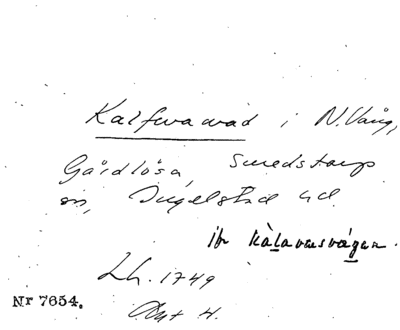 Kalfwawad i N. Vång,
Gårdlösa, Smedstorp
sn, Ingelstad hd.
jfr kàlavasvágen.
Lh. 1749
Akt 4.
Nr 7654.